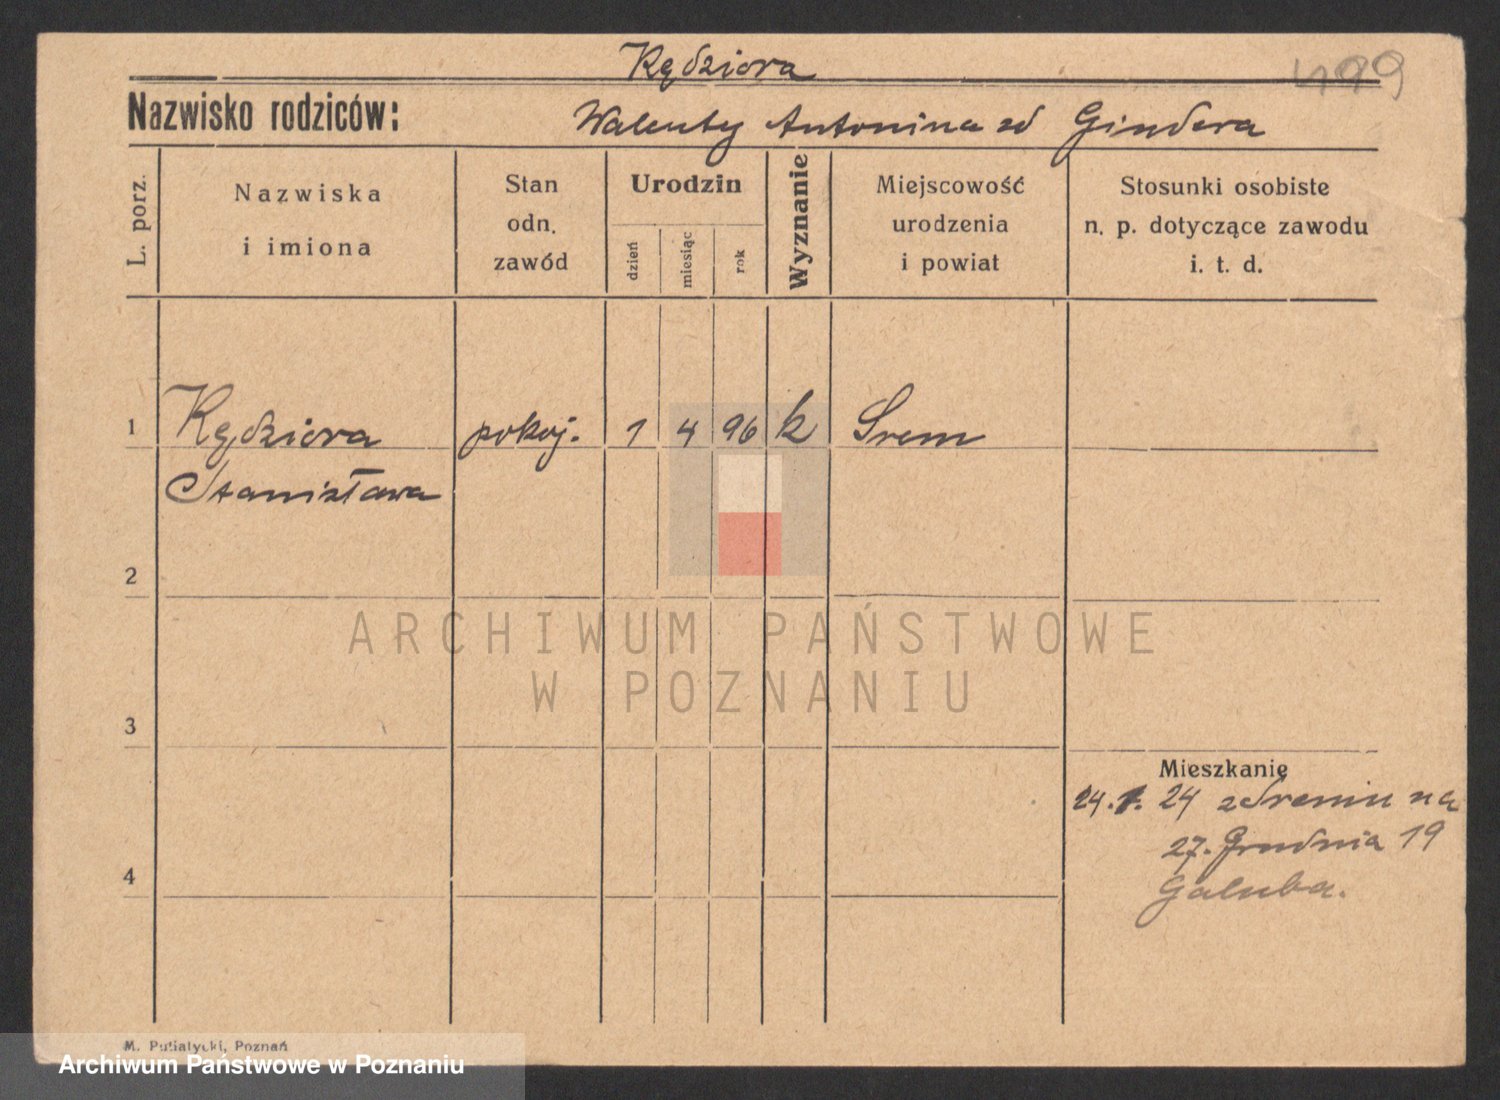 Kędziora
499
Nazwisko rodziców: Walenty Antonina zd Gindera
L. porz.
Nazwiska
i imiona
Stan
odn.
zawód
Urodzin
dzień
miesiąc
rok
Wyznanie
Miejscowość
urodzenia
i powiat
Stosunki osobiste
n. p. dotyczące zawodu
i. t. d.
1 Kędziora pokoj. 1 4 96 k Śrem
Stanisława
2
3
4
Mieszkanie
24. 1. 24 z Śremu na
27. Grudnia 19
Galuba.
ARCHIWUM PAŃSTWOWE
W POZNANIU
M. Putiatycki, Poznań
Archiwum Państwowe w Poznaniu